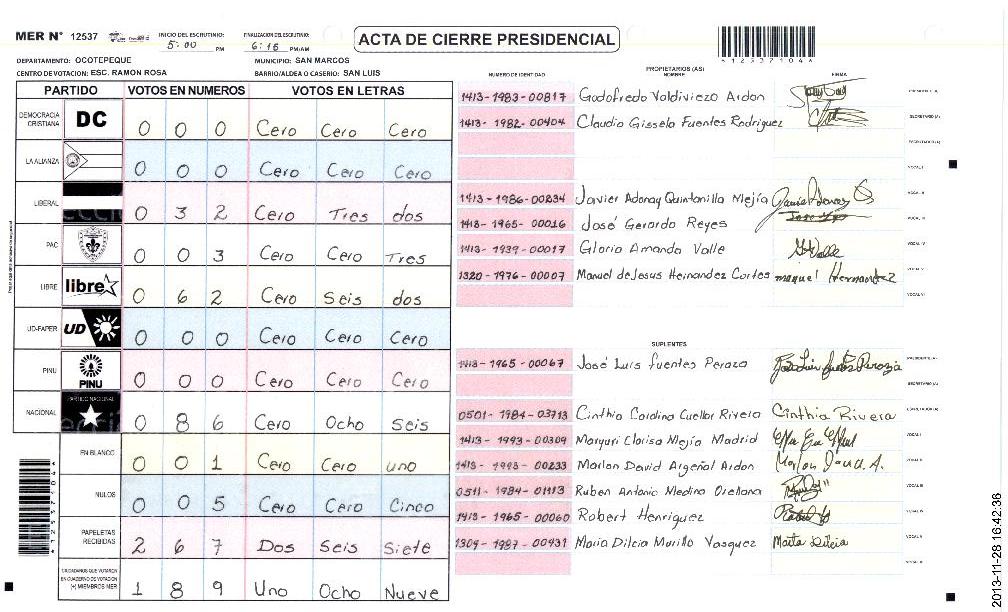 MER N° 12537 INICIO DEL ESCRUTINIO: 5:00 PM FINALIZACION DEL ESCRUTINIO: 6:16 PM/AM ACTA DE CIERRE PRESIDENCIAL
4125371044
DEPARTAMENTO: OCOTEPEQUE MUNICIPIO: SAN MARCOS
CENTRO DE VOTACION: ESC. RAMON ROSA BARRIO/ALDEA O CASERIO: SAN LUIS
PARTIDO VOTOS EN NUMEROS VOTOS EN LETRAS
DEMOCRACIA CRISTIANA DC 0 0 0 Cero Cero Cero
LA ALIANZA 0 0 0 Cero Cero Cero
LIBERAL 0 3 2 Cero Tres dos
PAC 0 0 3 Cero Cero Tres
LIBRE libre 0 6 2 Cero Seis dos
UD-FAPER UD 0 0 0 Cero Cero Cero
PINU PINU 0 0 0 Cero Cero Cero
NACIONAL PARTIDO NACIONAL 0 8 6 Cero Ocho Seis
EN BLANCO 0 0 1 Cero Cero uno
NULOS 0 0 5 Cero Cero Cinco
PAPELETAS RECIBIDAS 2 6 7 Dos Seis Siete
CIUDADANOS QUE VOTARON EN CUADERNO DE VOTACION (+) MIEMBROS MER 1 8 9 Uno Ocho Nueve
PROPIETARIOS (AS)
NUMERO DE IDENTIDAD NOMBRE FIRMA
1413-1983-00817 Godofredo Valdiviezo Ardon PRESIDENTE (A)
1413-1982-00404 Claudia Gissela Fuentes Rodriguez SECRETARIO (A)
ESCRUTADOR (A)
VOCAL I
1413-1986-00234 Javier Adonay Quintanilla Mejía VOCAL II
1413-1965-00016 José Gerardo Reyes VOCAL III
1413-1939-00017 Gloria Amanda Valle VOCAL IV
1320-1976-00007 Manuel de Jesus Hernandez Cortes manuel Hernandez VOCAL V
VOCAL VI
SUPLENTES
1413-1965-00067 José Luis fuentes Peraza PRESIDENTE (A)
SECRETARIO (A)
0501-1984-03713 Cinthia Carolina Cuellar Rivera Cinthia Rivera ESCRUTADOR (A)
1413-1993-00309 Maryuri Clarisa Mejía Madrid VOCAL I
1413-1993-00233 Marlon David Argeñal Ardon Marlon David. A. VOCAL II
0511-1984-01113 Ruben Antonio Medina Orellana VOCAL III
1413-1965-00060 Robert Henriquez VOCAL IV
1309-1987-00431 Maria Dilcia Murillo Vasquez Maria Dilcia VOCAL V
VOCAL VI
2013-11-28 16:42:36